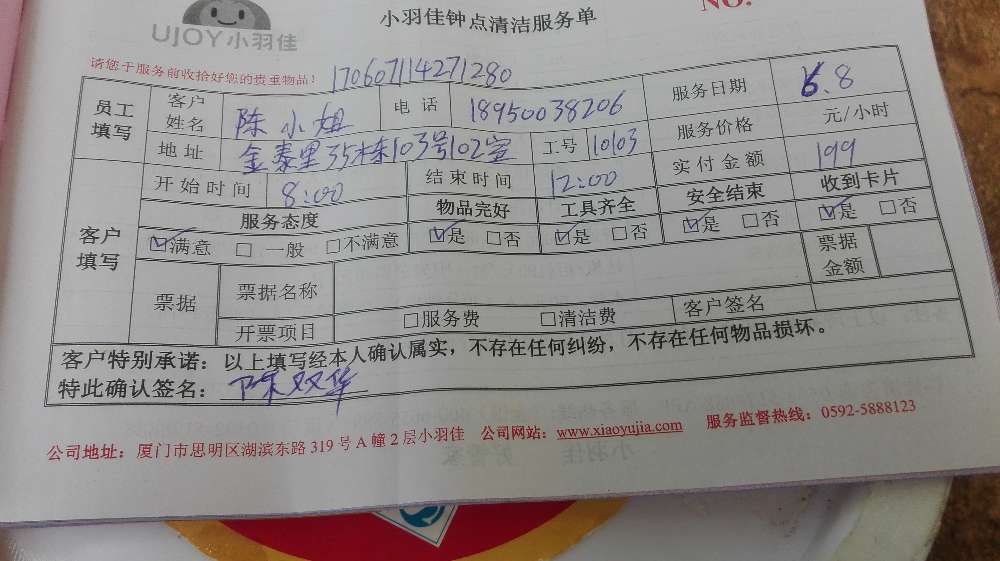 UJOY小羽佳
小羽佳钟点清洁服务单
NO.
请您于服务前收拾好您的贵重物品! 170607114271280
员工填写 客户姓名 陈小姐 电话 18950038206 服务日期 6.8
地址 金泰里35栋103号102室 工号 10103 服务价格 元/小时
开始时间 8:00 结束时间 12:00 实付金额 199
客户填写 服务态度 物品完好 工具齐全 安全结束 收到卡片
☑满意 □一般 □不满意 ☑是 □否 ☑是 □否 ☑是 □否 ☑是 □否
票据 票据名称 票据金额
开票项目 □服务费 □清洁费 客户签名
客户特别承诺：以上填写经本人确认属实，不存在任何纠纷，不存在任何物品损坏。
特此确认签名：陈双华
公司地址：厦门市思明区湖滨东路319号A幢2层小羽佳 公司网站：www.xiaoyujia.com 服务监督热线：0592-5888123